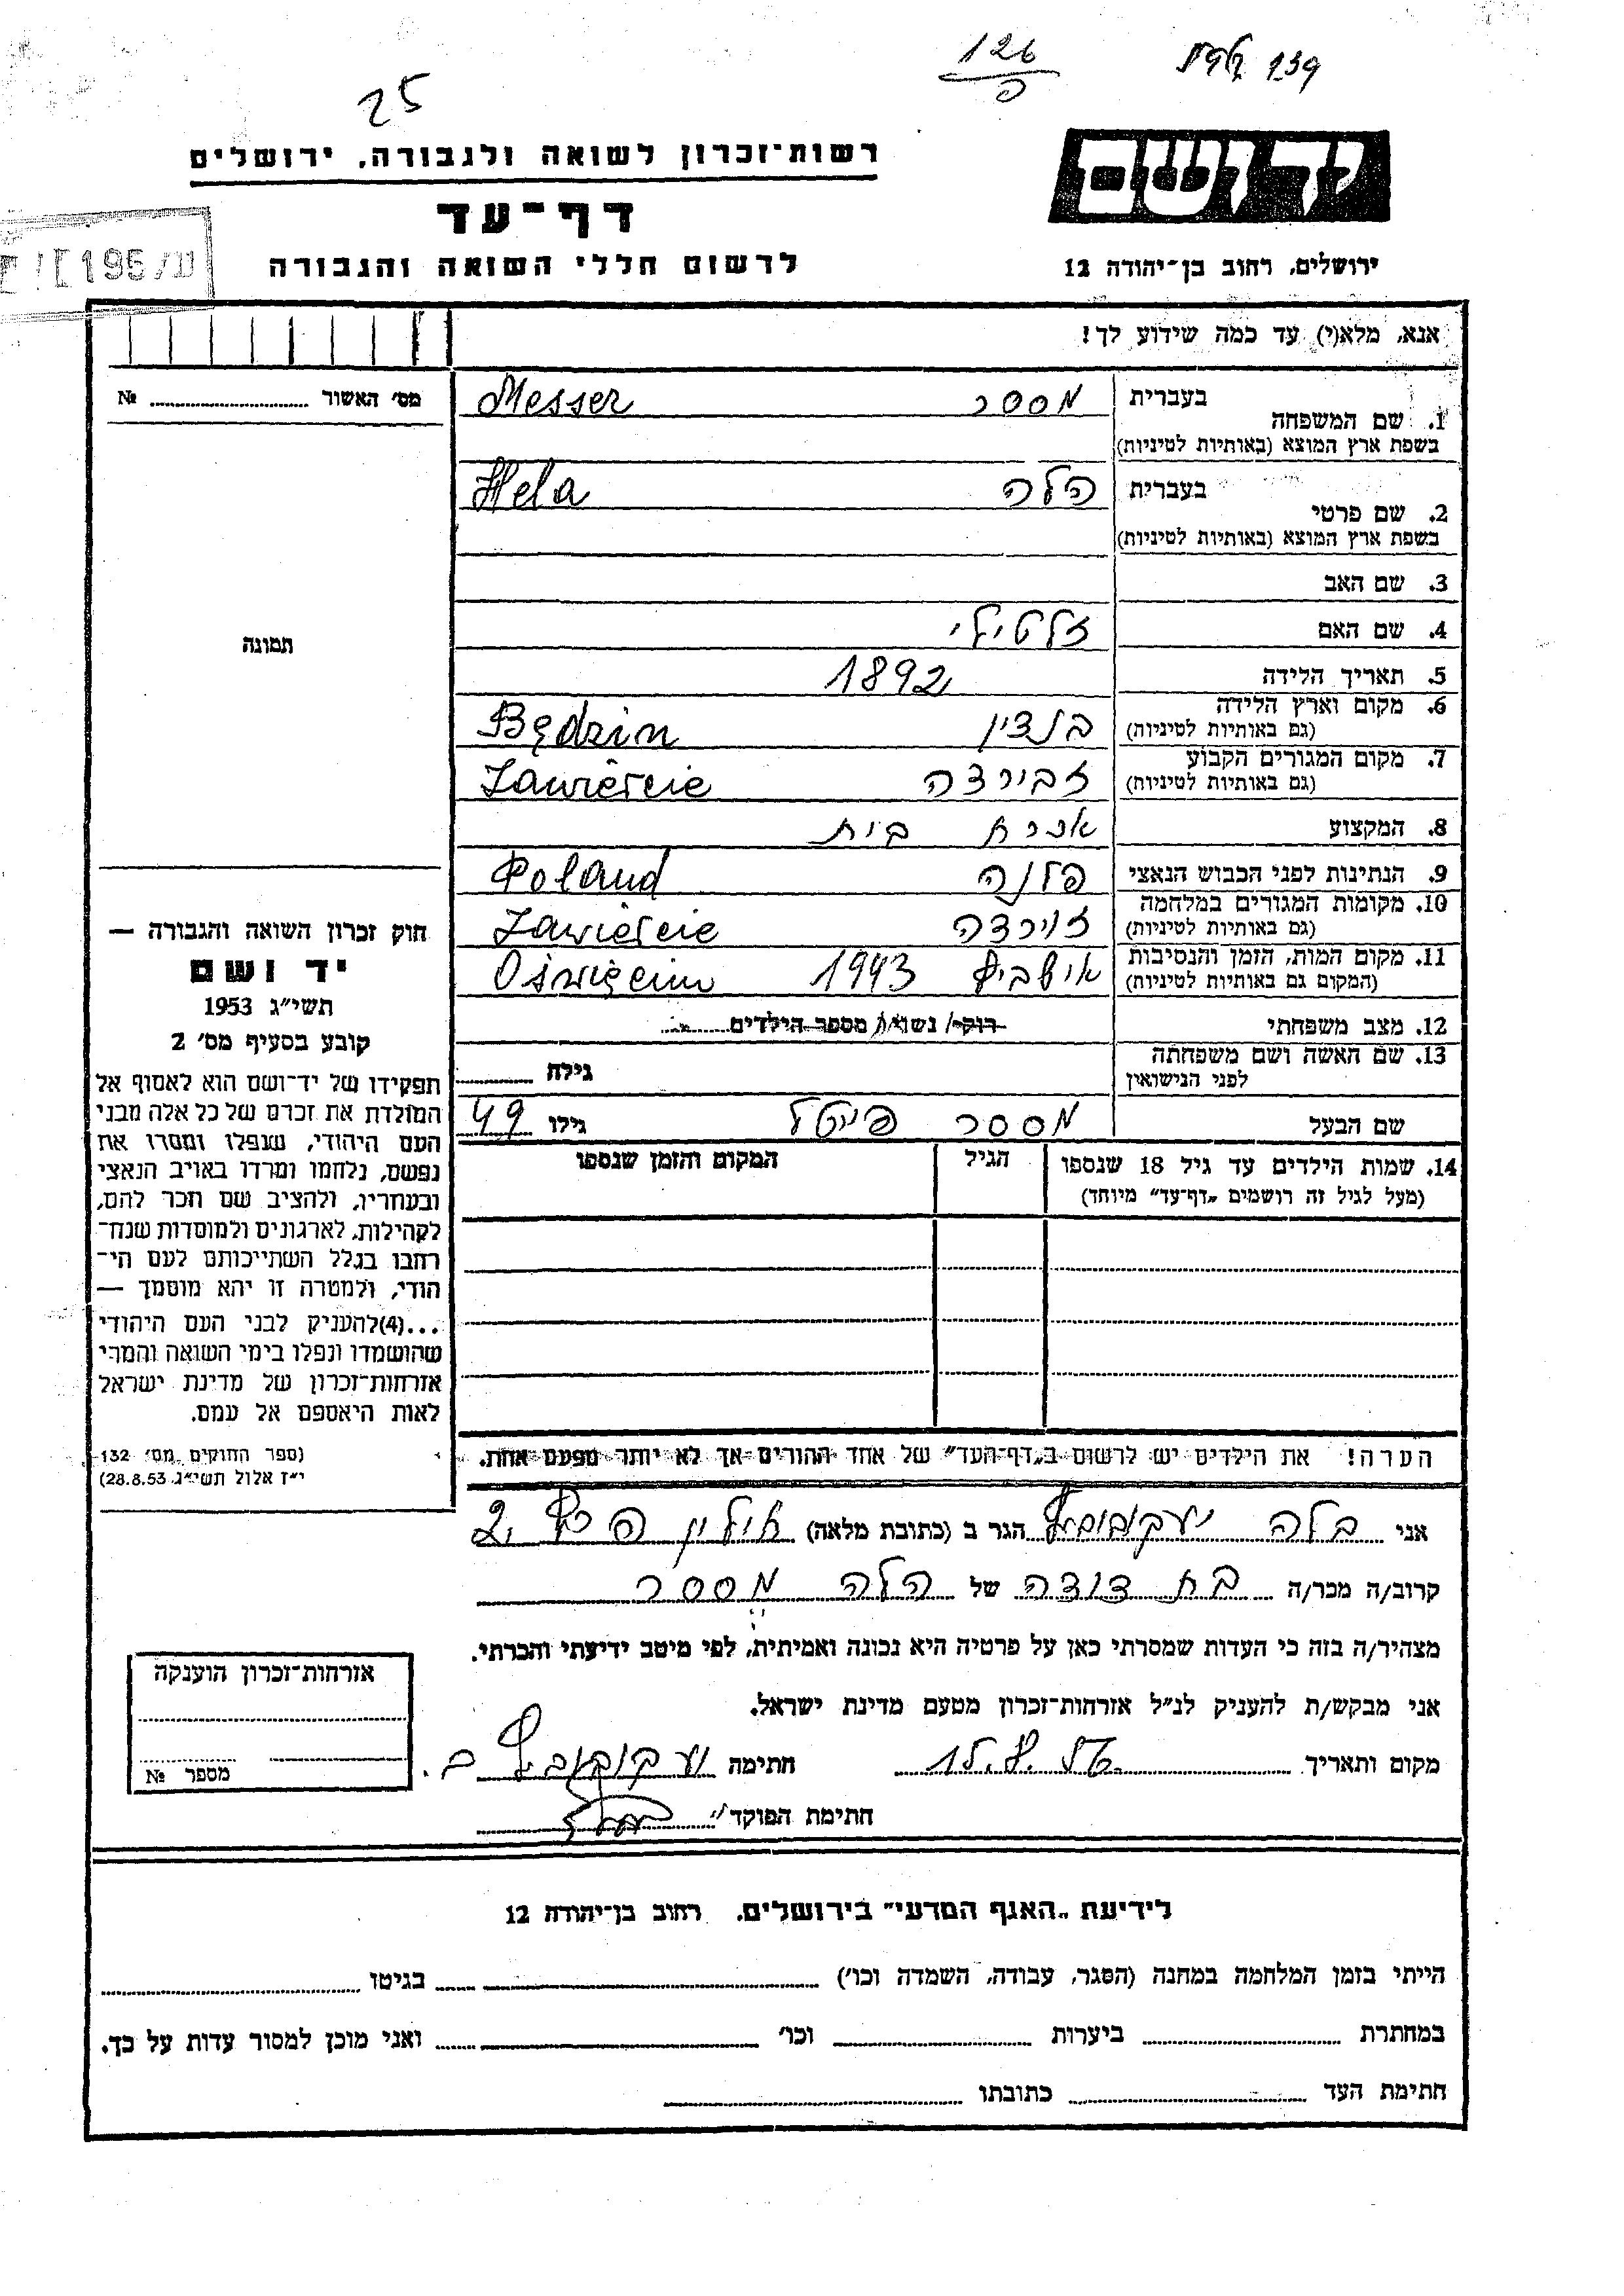 126
ס
139
25
רשות־זכרון לשואה ולגבורה, ירושלים
יד ושם
דף־עד
לרשום חללי השואה והגבורה
ירושלים, רחוב בן־יהודה 12
אנא, מלא(י) עד כמה שידוע לך!
מס׳ האשור № 
1. שם המשפחה בעברית מסר Messer
בשפת ארץ המוצא (באותיות לטיניות)
2. שם פרטי בעברית הלה Hela
בשפת ארץ המוצא (באותיות לטיניות)
3. שם האב
4. שם האם זלטילי
תמונה
5. תאריך הלידה 1892
6. מקום וארץ הלידה בנדצין Będzin
(גם באותיות לטיניות)
7. מקום המגורים הקבוע זבירצה Zawiercie
(גם באותיות לטיניות)
8. המקצוע עקרת בית
9. הנתינות לפני הכבוש הנאצי פולניה Poland
10. מקומות המגורים במלחמה זוירצה Zawiercie
(גם באותיות לטיניות)
11. מקום המות, הזמן והנסיבות אושביץ 1943 Oświęcim
(המקום גם באותיות לטיניות)
12. מצב משפחתי רווק/ נשוי/ מספר הילדים
13. שם האשה ושם משפחתה
לפני הנישואין גילה
שם הבעל מסר פייטל גילו 49
14. שמות הילדים עד גיל 18 שנספו הגיל המקום והזמן שנספו
(מעל לגיל זה רושמים „דף־עד״ מיוחד)
הערה! את הילדים יש לרשום ב„דף־העד״ של אחד ההורים אך לא יותר מפעם אחת.
חוק זכרון השואה והגבורה —
יד ושם
תשי״ג 1953
קובע בסעיף מס׳ 2
תפקידו של יד־ושם הוא לאסוף אל
המולדת את זכרם של כל אלה מבני
העם היהודי, שנפלו ומסרו את
נפשם, נלחמו ומרדו באויב הנאצי
ובעוזריו, ולהציב שם וזכר להם,
לקהילות, לארגונים ולמוסדות שנח־
רבו בגלל השתייכותם לעם הי־
הודי, ולמטרה זו יהא מוסמך —
...(4)להעניק לבני העם היהודי
שהושמדו ונפלו בימי השואה והמרי
אזרחות־זכרון של מדינת ישראל
לאות היאספם אל עמם.
(ספר החוקים מס׳ 132
י״ז אלול תשי״ג 28.8.53)
אני בלה יעקובוביץ הגר ב (כתובת מלאה) אילון 2
קרוב/ה מכר/ה בת דודה של הלה מסר
מצהיר/ה בזה כי העדות שמסרתי כאן על פרטיה היא נכונה ואמיתית, לפי מיטב ידיעתי והכרתי.
אני מבקש/ת להעניק לנ״ל אזרחות־זכרון מטעם מדינת ישראל.
מקום ותאריך חתימה יעקובוביץ ב.
חתימת הפוקד
אזרחות־זכרון הוענקה
מספר №
לידיעת „האגף המדעי״ בירושלים, רחוב בן־יהודה 12
הייתי בזמן המלחמה במחנה (הסגר, עבודה, השמדה וכו׳) בגיטו
במחתרת ביערות וכו׳ ואני מוכן למסור עדות על כך.
חתימת העד כתובתו